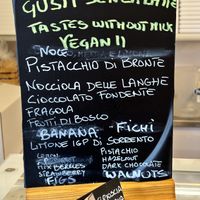 GUSTI SENZA LATTE
TASTES WITHOUT MILK
VEGAN !!
NOCE
PISTACCHIO DI BRONTE
NOCCIOLA DELLE LANGHE
CIOCCOLATO FONDENTE
FRAGOLA
FRUTTI DI BOSCO
BANANA - FICHI
LIMONE IGP DI SORRENTO
PISTACHIO
HAZELNUT
MIX BERRIES DARK CHOCOLATE
STRAWBERRY WALNUTS
FIGS